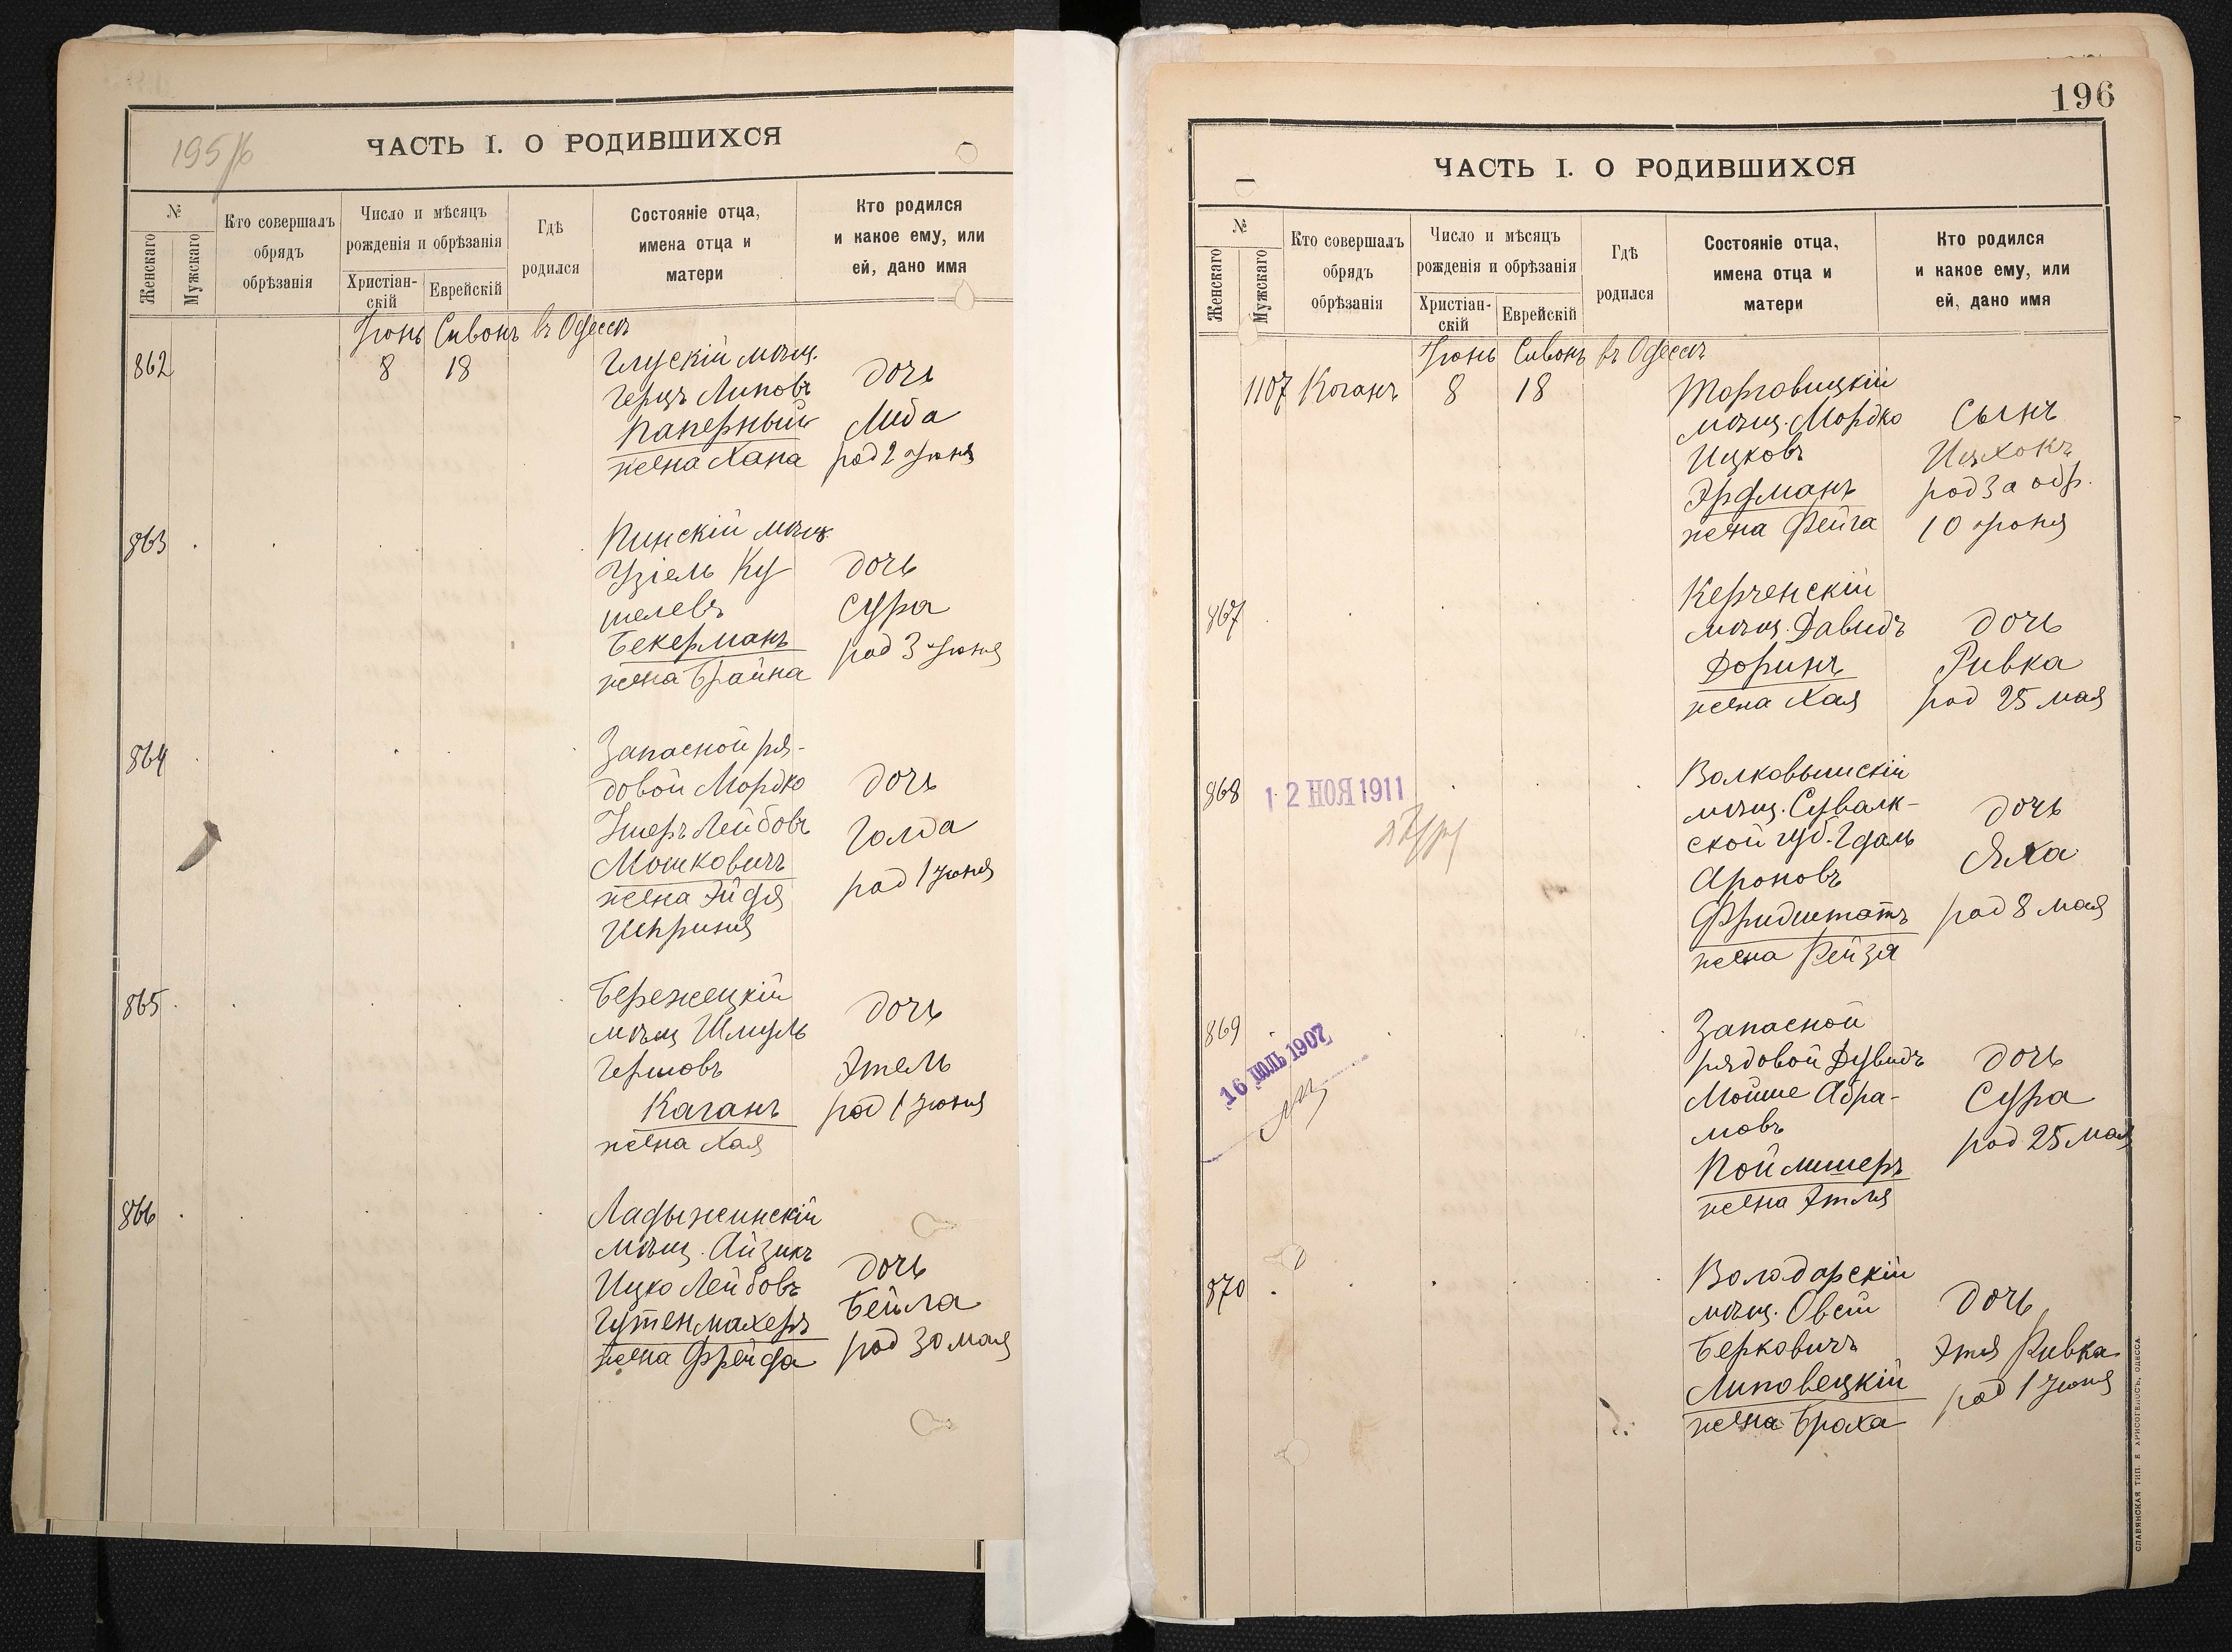 195/6
ЧАСТЬ I. О РОДИВШИХСЯ
№
Женскаго
Мужскаго
Кто совершалъ
обрядъ
обрѣзанія
Число и мѣсяцъ
рожденія и обрѣзанія
Христіан-
скій
Еврейскій
Гдѣ
родился
Состояніе отца,
имена отца и
матери
Кто родился
и какое ему, или
ей, дано имя
Іюнь Сивонъ въ Одессѣ
862 8 18
Глускій мѣщ.
Герцъ Липовъ
Паперный
жена Хана
дочь
Лида
род 2 Іюня
863
Пинскій мѣщ.
Узіель Ку
шелевъ
Бекерманъ
жена Брайна
дочь
Сура
род 3 Іюня
864
Запасной ря-
довой Мордко
Ушеръ Лейбовъ
Мошковичъ
жена Эйдя
дочь
Голда
род 1 Іюня
865
Бережецкій
мѣщ Шмуль
Гершовъ
Каганъ
жена Хая
дочь
Этель
род 1 Іюня
866
Ладыжинскій
мѣщ. Айзикъ
Ицко Лейбовъ
Гутенмахеръ
жена Фрейда
дочь
Бейла
род 30 мая
196
ЧАСТЬ I. О РОДИВШИХСЯ
№
Женскаго
Мужскаго
Кто совершалъ
обрядъ
обрѣзанія
Число и мѣсяцъ
рожденія и обрѣзанія
Христіан-
скій
Еврейскій
Гдѣ
родился
Состояніе отца,
имена отца и
матери
Кто родился
и какое ему, или
ей, дано имя
Іюнь Сивонъ въ Одессѣ
1107 Коганъ 8 18
Торговицкій
мѣщ. Мордко
Ицковъ
Эрдманъ
жена Фейга
Сынъ
Ицхокъ
род 3 а обр.
10 Іюня
867
Керченскій
мѣщ. Давидъ
Доринъ
жена Хая
дочь
Ривка
род 25 мая
868
12 НОЯ 1911
Волковышскій
мѣщ. Сувалк-
ской губ. Гдаль
Ароновъ
Фридштатъ
жена Рейзя
дочь
Яха
род 8 мая
869
16 ІЮЛЬ 1907
Запасной
рядовой Дувидъ
Мойше Абра-
мовъ
Койлишеръ
жена Этля
дочь
Сура
род 25 мая
870
Володарскій
мѣщ. Овсій
Берковичъ
Липовецкій
жена Браха
дочь
Этя Ривка
род 1 Іюня
СЛАВЯНСКАЯ ТИП. Е. ХРИСОГЕЛОСЪ, ОДЕССА.